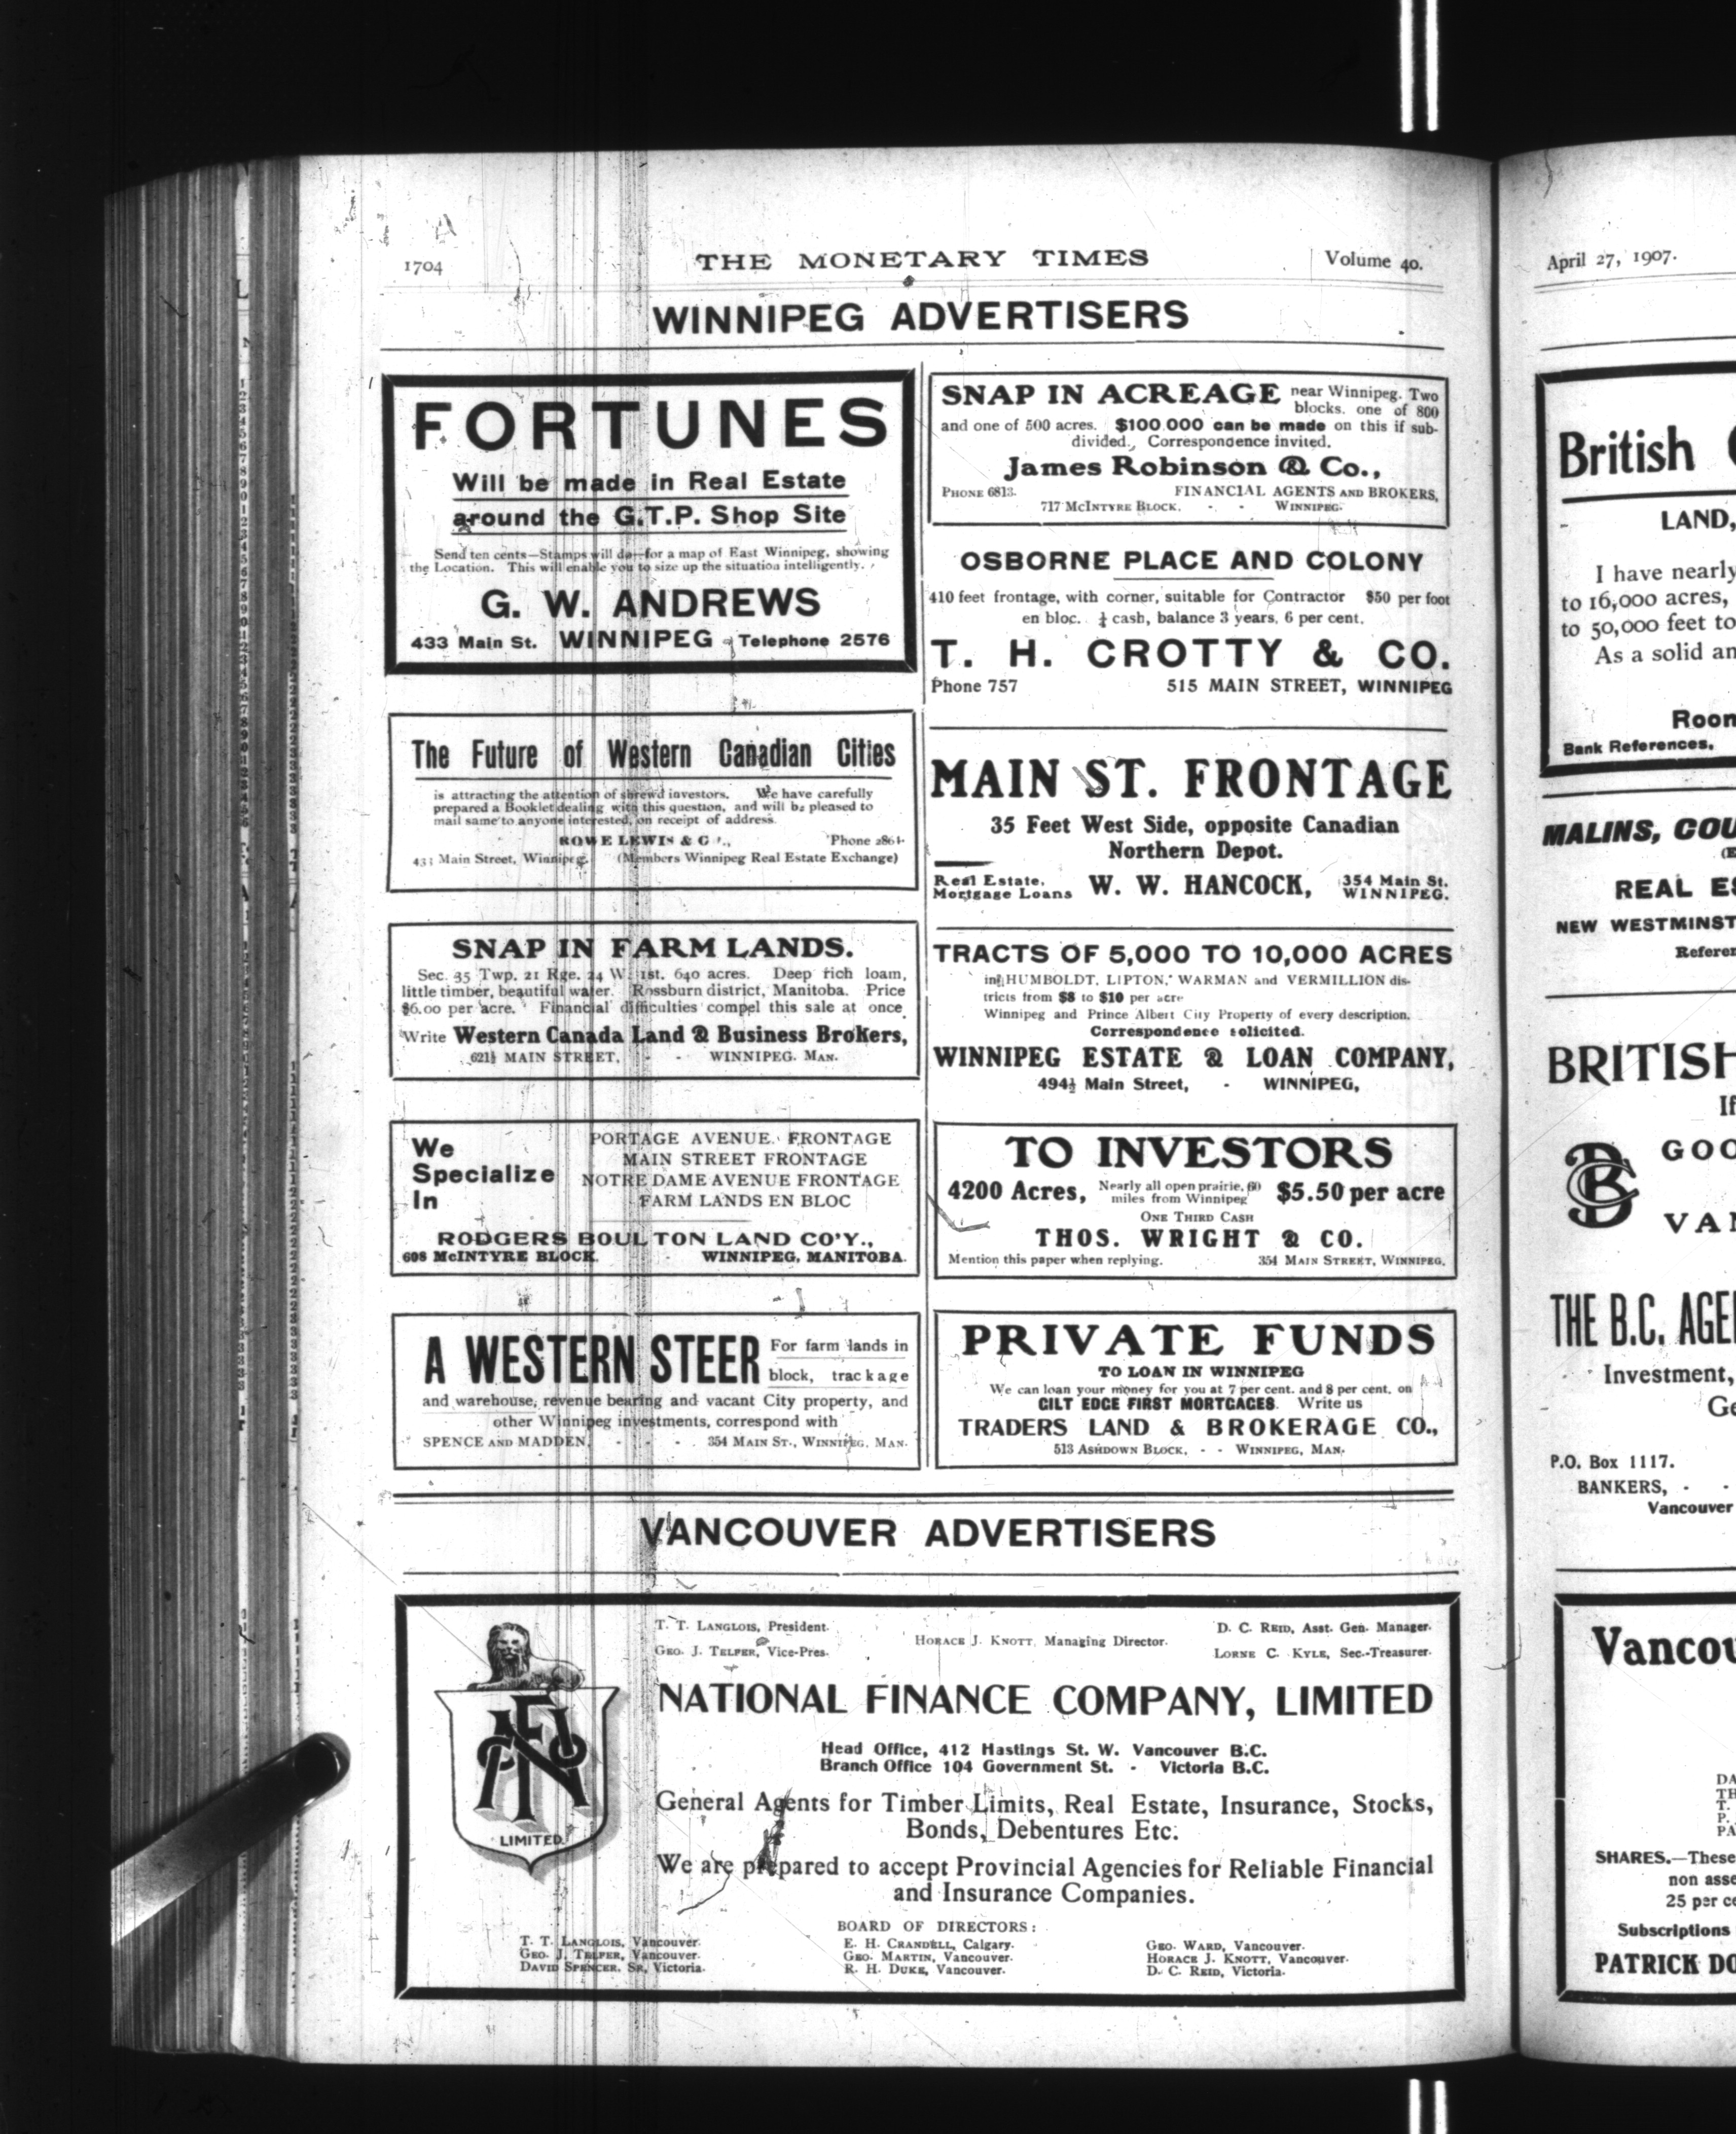 1704
THE MONETARY TIMES
Volume 40.
WINNIPEG ADVERTISERS
FORTUNES
Will be made in Real Estate
around the G.T.P. Shop Site
Send ten cents—Stamps will do—for a map of East Winnipeg, showing
the Location. This will enable you to size up the situation intelligently.
G. W. ANDREWS
433 Main St. WINNIPEG Telephone 2576
The Future of Western Canadian Cities
is attracting the attention of shrewd investors. We have carefully
prepared a Booklet dealing with this question, and will be pleased to
mail same to anyone interested, on receipt of address.
ROWE LEWIS &
Phone 2864.
Main Street, Winnipeg. (Members Winnipeg Real Estate Exchange)
SNAP IN FARM LANDS.
Sec. 35 Twp. 21 Rge. 24 W. 1st. 640 acres. Deep rich loam,
little timber, beautiful water. Rossburn district, Manitoba. Price
$6.00 per acre. Financial difficulties compel this sale at once
Write Western Canada Land & Business Brokers,
621½ MAIN STREET, - - WINNIPEG. MAN.
We
Specialize
In
PORTAGE AVENUE. FRONTAGE
MAIN STREET FRONTAGE
NOTRE DAME AVENUE FRONTAGE
FARM LANDS EN BLOC
RODGERS BOULTON LAND CO'Y.,
608 McINTYRE BLOCK. - WINNIPEG, MANITOBA.
A WESTERN STEER For farm lands in
block, trackage
and warehouse, revenue bearing and vacant City property, and
other Winnipeg investments, correspond with
SPENCE AND MADDEN, - - - 354 MAIN ST., WINNIPEG, MAN.
SNAP IN ACREAGE near Winnipeg. Two
blocks. one of 800
and one of 500 acres. $100,000 can be made on this if sub-
divided. Correspondence invited.
James Robinson & Co.,
PHONE 6813. FINANCIAL AGENTS AND BROKERS,
717 McINTYRE BLOCK. - - WINNIPEG.
OSBORNE PLACE AND COLONY
410 feet frontage, with corner, suitable for Contractor $50 per foot
en bloc. cash, balance 3 years, 6 per cent.
T. H. CROTTY & CO.
Phone 757 515 MAIN STREET, WINNIPEG
MAIN ST. FRONTAGE
35 Feet West Side, opposite Canadian
Northern Depot.
Real Estate,
Mortgage Loans W. W. HANCOCK, 354 Main St.
WINNIPEG.
TRACTS OF 5,000 TO 10,000 ACRES
in HUMBOLDT, LIPTON, WARMAN and VERMILLION dis-
tricts from $8 to $10 per acre
Winnipeg and Prince Albert City Property of every description.
Correspondence solicited.
WINNIPEG ESTATE & LOAN COMPANY,
494½ Main Street, - WINNIPEG,
TO INVESTORS
4200 Acres, Nearly all open prairie, 60
miles from Winnipeg $5.50 per acre
ONE THIRD CASH
THOS. WRIGHT & CO.
Mention this paper when replying. 354 MAIN STREET, WINNIPEG.
PRIVATE FUNDS
TO LOAN IN WINNIPEG
We can loan your money for you at 7 per cent. and 8 per cent. on
GILT EDGE FIRST MORTGAGES. Write us
TRADERS LAND & BROKERAGE CO.,
513 ASHDOWN BLOCK, - - WINNIPEG, MAN.
VANCOUVER ADVERTISERS
T. T. LANGLOIS, President.
GEO. J. TELFER, Vice-Pres.
HORACE J. KNOTT, Managing Director.
D. C. REID, Asst. Gen. Manager.
LORNE C. KYLE, Sec.-Treasurer.
LIMITED.
NATIONAL FINANCE COMPANY, LIMITED
Head Office, 412 Hastings St. W. Vancouver B.C.
Branch Office 104 Government St. - Victoria B.C.
General Agents for Timber Limits, Real Estate, Insurance, Stocks,
Bonds, Debentures Etc.
We are prepared to accept Provincial Agencies for Reliable Financial
and Insurance Companies.
BOARD OF DIRECTORS:
T. T. LANGLOIS, Vancouver.
GEO. J. TELFER, Vancouver.
DAVID SPENCER, SR, Victoria.
E. H. CRANDELL, Calgary.
GEO. MARTIN, Vancouver.
R. H. DUKE, Vancouver.
GEO. WARD, Vancouver.
HORACE J. KNOTT, Vancouver.
D. C. REID, Victoria.
April 27, 1907.
British
LAND,
I have nearly
to 16,000 acres,
to 50,000 feet to
As a solid
Room
Bank References,
MALINS,
REAL
NEW
BRITISH
If
VAN
THE B.C.
Investment,
P.O. Box 1117.
BANKERS, - -
Vancouver
SHARES.—These
non
25 per
Subscriptions
PATRICK